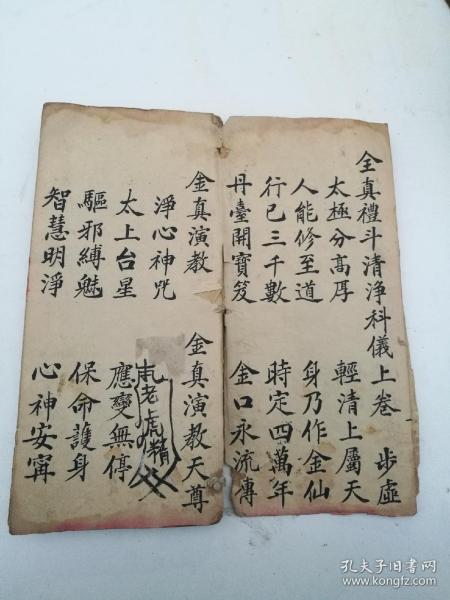 全真禮斗清淨科儀上卷 步虛
太極分高厚 輕清上屬天
人能修至道 身乃作金仙
行已三千數 時定四萬年
丹臺開寶笈 金口永流傳
金真演教 金真演教天尊
淨心神咒
太上台星 應變無停
驅邪縛魅 保命護身
智慧明淨 心神安寗
老虎精
孔夫子旧书网
www.kongfz.com